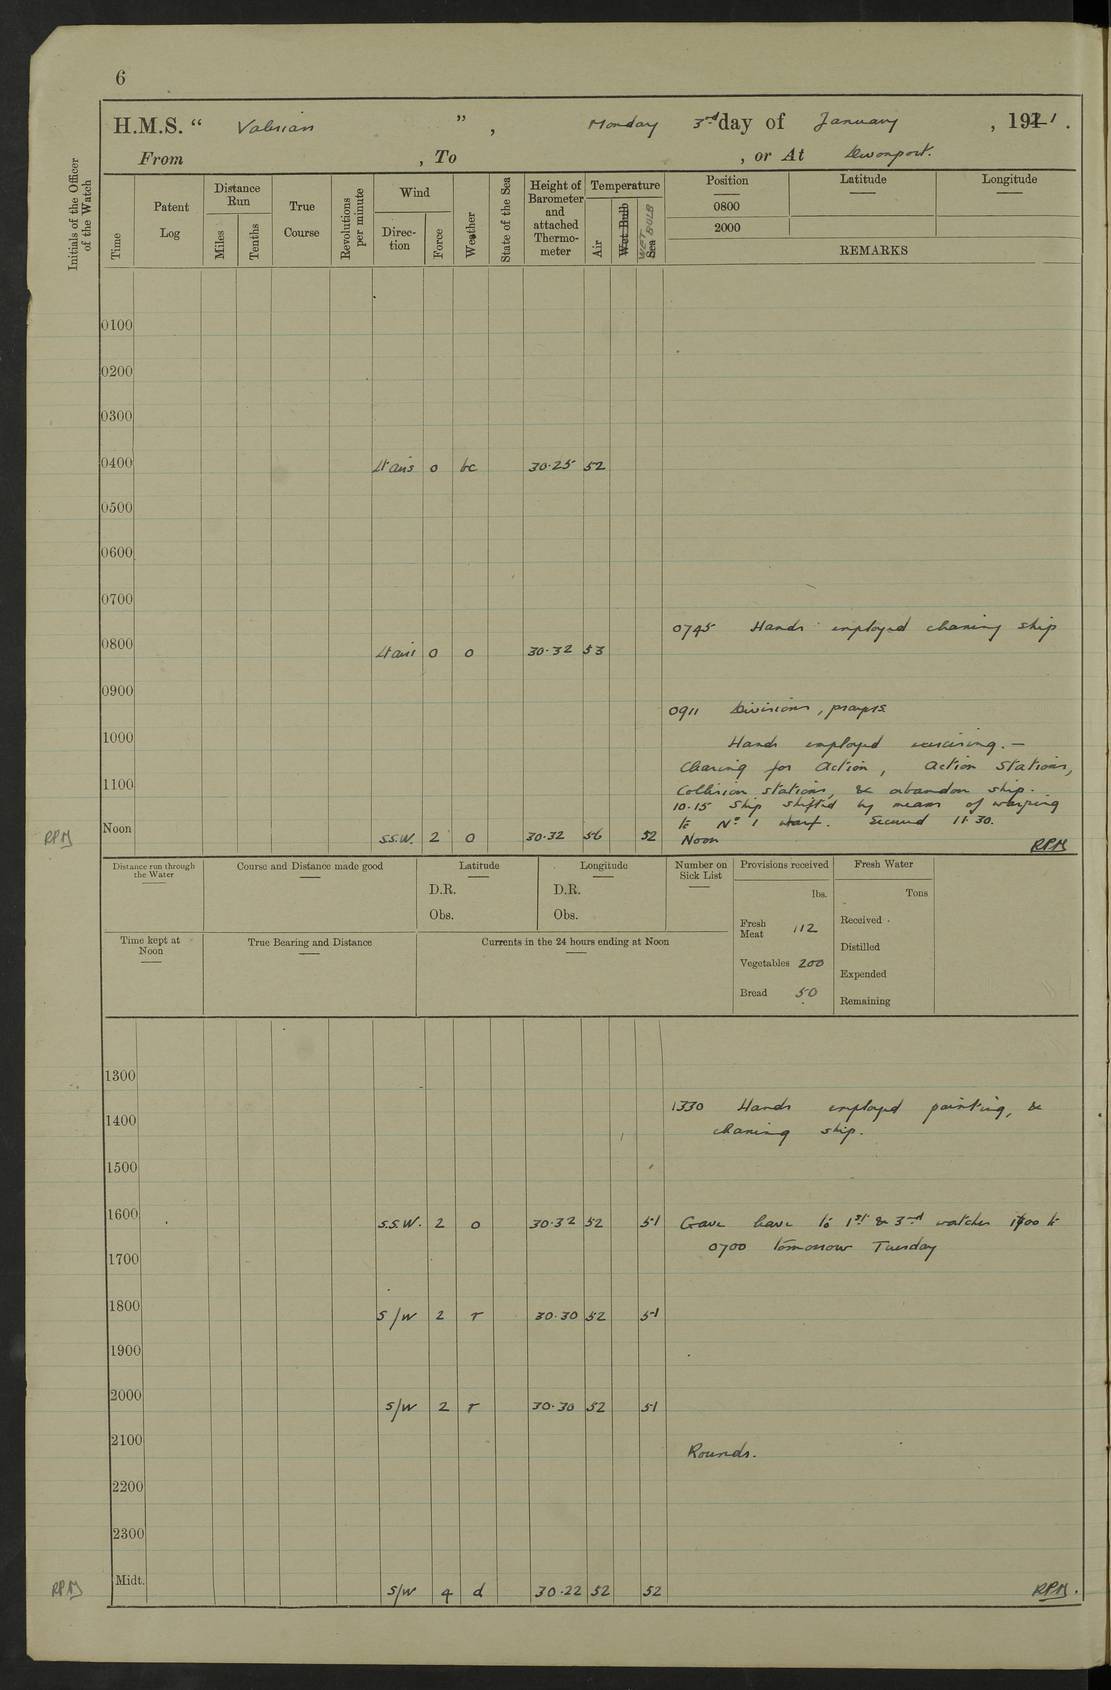 6
H.M.S. “ Valerian ” , Monday 3rd day of January , 1921 .
From , To , or At Devonport.
Initials of the Officer of the Watch
Time
Patent Log
Distance Run
Miles
Tenths
True Course
Revolutions per minute
Wind
Direc- tion
Force
Weather
State of the Sea
Height of Barometer and attached Thermo- meter
Temperature
Air
Wet Bulb
Sea
WET BULB
Position
0800
2000
Latitude
Longitude
REMARKS
0100
0200
0300
0400 Lt airs 0 bc 30.25 52
0500
0600
0700
0745 Hands employed cleaning ship
0800 Lt airs 0 o 30.32 53
0900
0911 Divisions, prayers.
1000 Hands employed exercising. —
Clearing for Action, Action Stations,
1100 Collision stations, & abandon ship.
10.15 Ship shifted by means of warping
to No 1 wharf. Secured 11.30.
RPM Noon S.S.W. 2 o 30.32 56 52 Noon RPM
Distance run through the Water
Course and Distance made good
Latitude
D.R.
Obs.
Longitude
D.R.
Obs.
Number on Sick List
Provisions received
lbs.
Fresh Meat 112
Vegetables 200
Bread 50
Fresh Water
Tons
Received
Distilled
Expended
Remaining
Time kept at Noon
True Bearing and Distance
Currents in the 24 hours ending at Noon
1300
1330 Hands employed painting, &
1400 cleaning ship.
1500
1600 S.S.W. 2 o 30.32 52 51 Gave leave to 1st & 3rd watches to
0700 tomorrow Tuesday
1700
1800 S/W 2 r 30.30 52 51
1900
2000 S/W 2 r 30.30 52 51
2100 Rounds.
2200
2300
RPM Midt. S/W 4 d 30.22 52 52 RPM.